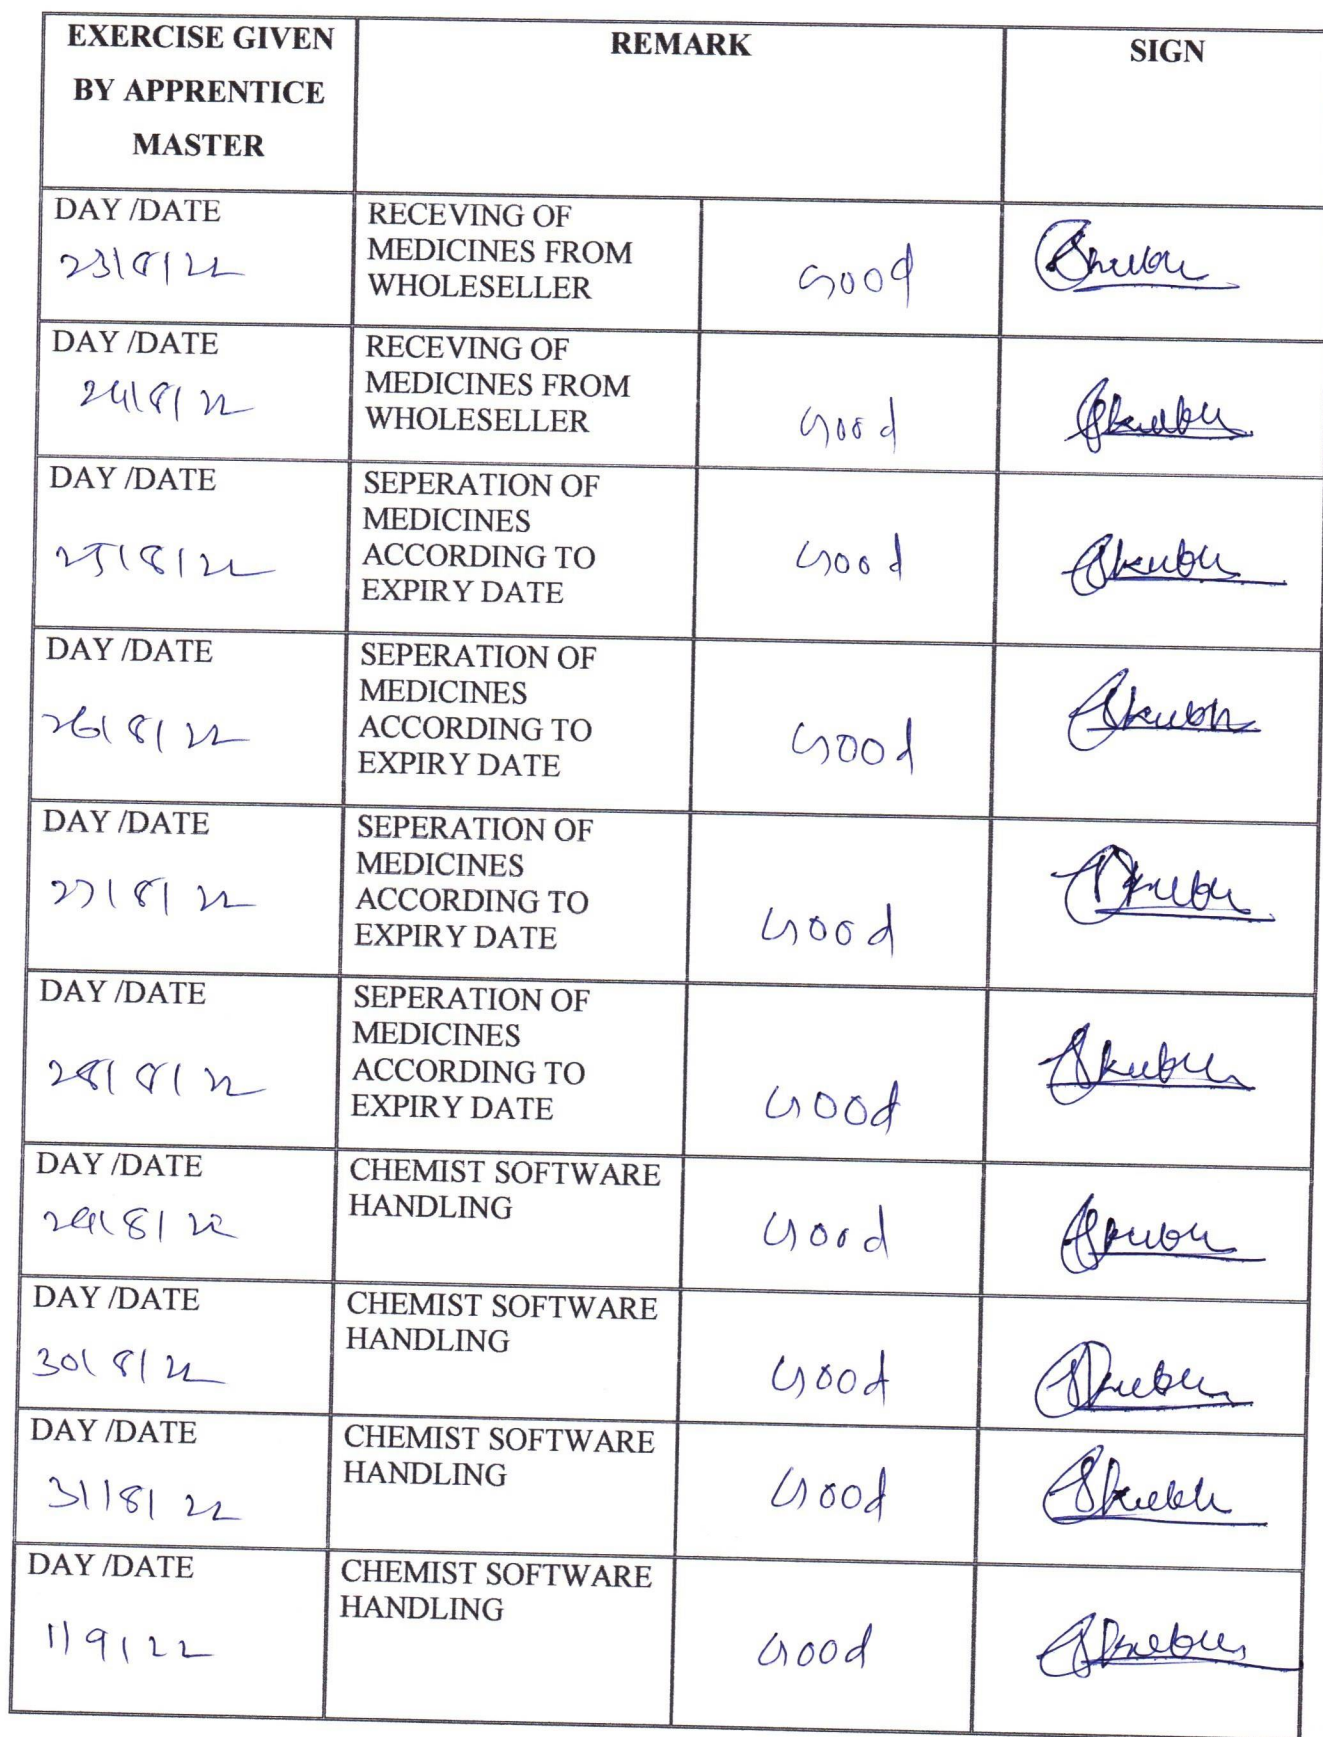 EXERCISE GIVEN
BY APPRENTICE
MASTER
REMARK
SIGN
DAY /DATE
23/8/22
RECEVING OF
MEDICINES FROM
WHOLESELLER
Good
DAY /DATE
24/8/22
RECEVING OF
MEDICINES FROM
WHOLESELLER
Good
DAY /DATE
25/8/22
SEPERATION OF
MEDICINES
ACCORDING TO
EXPIRY DATE
Good
DAY /DATE
26/8/22
SEPERATION OF
MEDICINES
ACCORDING TO
EXPIRY DATE
Good
DAY /DATE
27/8/22
SEPERATION OF
MEDICINES
ACCORDING TO
EXPIRY DATE
Good
DAY /DATE
28/8/22
SEPERATION OF
MEDICINES
ACCORDING TO
EXPIRY DATE
Good
DAY /DATE
29/8/22
CHEMIST SOFTWARE
HANDLING
Good
DAY /DATE
30/8/22
CHEMIST SOFTWARE
HANDLING
Good
DAY /DATE
31/8/22
CHEMIST SOFTWARE
HANDLING
Good
DAY /DATE
1/9/22
CHEMIST SOFTWARE
HANDLING
Good